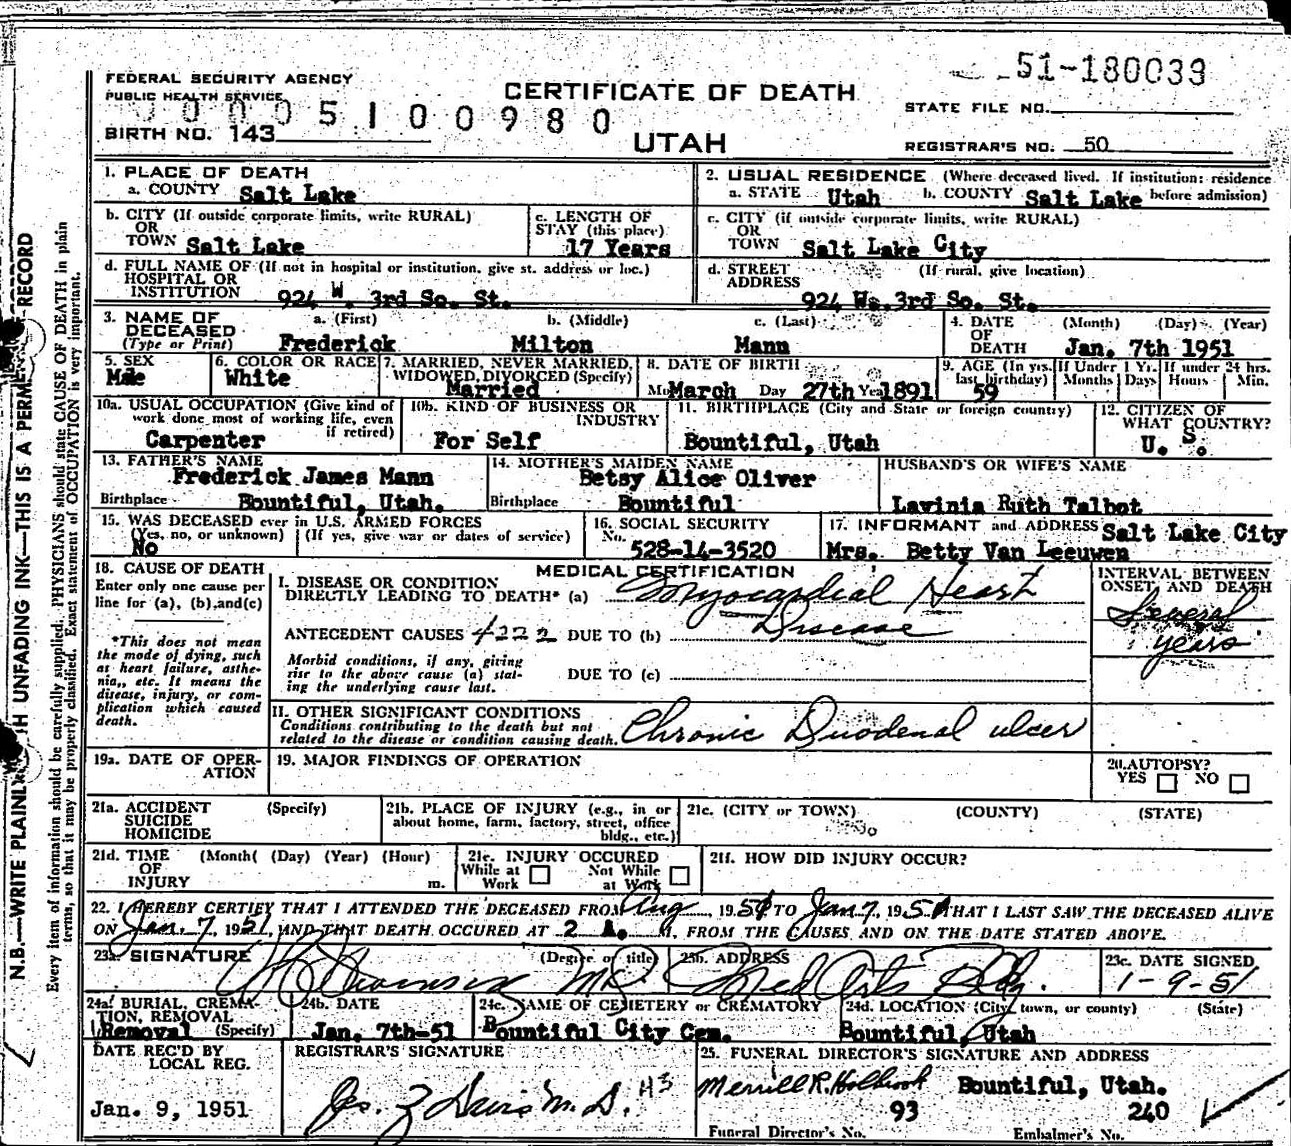 51-180039
FEDERAL SECURITY AGENCY
PUBLIC HEALTH SERVICE
CERTIFICATE OF DEATH
STATE FILE NO.
0005100980
BIRTH NO. 143
UTAH
REGISTRAR'S NO. 50
1. PLACE OF DEATH
a. COUNTY Salt Lake
2. USUAL RESIDENCE (Where deceased lived. If institution: residence before admission)
a. STATE Utah b. COUNTY Salt Lake
b. CITY (If outside corporate limits, write RURAL)
OR TOWN Salt Lake
c. LENGTH OF STAY (this place) 17 Years
c. CITY (if outside corporate limits, write RURAL)
OR TOWN Salt Lake City
d. FULL NAME OF (If not in hospital or institution, give st. address or loc.)
HOSPITAL OR INSTITUTION 924 W. 3rd So. St.
d. STREET ADDRESS (If rural, give location)
924 Ws.3rd So. St.
3. NAME OF DECEASED (Type or Print)
a. (First) Frederick b. (Middle) Milton c. (Last) Mann
4. DATE OF DEATH (Month) (Day) (Year)
Jan. 7th 1951
5. SEX Male
6. COLOR OR RACE White
7. MARRIED, NEVER MARRIED, WIDOWED, DIVORCED (Specify) Married
8. DATE OF BIRTH
March Day 27th 1891
9. AGE (In yrs. last birthday) 59
If Under 1 Yr. Months Days
If under 24 hrs. Hours Min.
10a. USUAL OCCUPATION (Give kind of work done most of working life, even if retired)
Carpenter
10b. KIND OF BUSINESS OR INDUSTRY
For Self
11. BIRTHPLACE (City and State or foreign country)
Bountiful, Utah
12. CITIZEN OF WHAT COUNTRY?
U. S.
13. FATHER'S NAME
Frederick James Mann
Birthplace Bountiful, Utah.
14. MOTHER'S MAIDEN NAME
Betsy Alice Oliver
Birthplace Bountiful
HUSBAND'S OR WIFE'S NAME
Lavinia Ruth Talbot
15. WAS DECEASED ever in U.S. ARMED FORCES
(Yes, no, or unknown) (If yes, give war or dates of service)
No
16. SOCIAL SECURITY
No. 528-14-3520
17. INFORMANT and ADDRESS Salt Lake City
Mrs. Betty Van Leeuwen
18. CAUSE OF DEATH
Enter only one cause per line for (a), (b), and (c)
*This does not mean the mode of dying, such as heart failure, asthenia,, etc. It means the disease, injury, or complication which caused death.
MEDICAL CERTIFICATION
I. DISEASE OR CONDITION DIRECTLY LEADING TO DEATH* (a) Myocardial Heart Disease
ANTECEDENT CAUSES 4222 DUE TO (b)
Morbid conditions, if any, giving rise to the above cause (a) stating the underlying cause last.
DUE TO (c)
INTERVAL BETWEEN ONSET AND DEATH
Several years
II. OTHER SIGNIFICANT CONDITIONS
Conditions contributing to the death but not related to the disease or condition causing death.
Chronic Duodenal ulcer
19a. DATE OF OPERATION
19. MAJOR FINDINGS OF OPERATION
20. AUTOPSY?
YES NO
21a. ACCIDENT SUICIDE HOMICIDE (Specify)
21b. PLACE OF INJURY (e.g., in or about home, farm, factory, street, office bldg., etc.)
21c. (CITY or TOWN) (COUNTY) (STATE)
21d. TIME OF INJURY (Month( (Day) (Year) (Hour) m.
21e. INJURY OCCURED
While at Work Not While at Work
21f. HOW DID INJURY OCCUR?
22. I HEREBY CERTIFY THAT I ATTENDED THE DECEASED FROM Aug, 19 TO Jan 7, 1951 THAT I LAST SAW THE DECEASED ALIVE
ON Jan. 7, 1951, AND THAT DEATH OCCURED AT 2 A. M, FROM THE CAUSES AND ON THE DATE STATED ABOVE.
23a. SIGNATURE (Degree or title)
M.D.
23b. ADDRESS
Med Arts Bldg.
23c. DATE SIGNED
1-9-51
24a. BURIAL, CREMATION, REMOVAL (Specify)
Removal
24b. DATE
Jan. 7th-51
24c. NAME OF CEMETERY or CREMATORY
Bountiful City Cem.
24d. LOCATION (City, town, or county) (State)
Bountiful, Utah
DATE REC'D BY LOCAL REG.
Jan. 9, 1951
REGISTRAR'S SIGNATURE
Jos. Z Davis M.D. H3
25. FUNERAL DIRECTOR'S SIGNATURE AND ADDRESS
Merrill R. Holbrook Bountiful, Utah.
93 240
Funeral Director's No. Embalmer's No.
N.B.—WRITE PLAINLY UNFADING INK—THIS IS A PERM RECORD
Every item of information should be carefully supplied. PHYSICIANS should state CAUSE OF DEATH in plain
terms, so that it may be properly classified. Exact statement of OCCUPATION is very important.